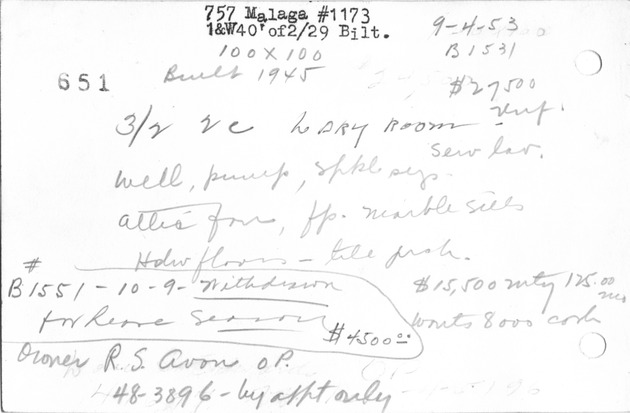 757 Malaga #1173
1&W40'of2/29 Bilt.
9-4-53
100 x 100
B1531
Built 1945
651
$27500
Unf.
3/2 2c LDRY ROOM -
Serv lav.
Well, pump, Spkl sys.
attic fan, fp. marble sills
Hdw floors - tile prch.
#
B1551 - 10-9 - Withdrawn
$15,500 mtg 125.00 mo
for Season
$4500.00
wants 8000 cash
Owner R.S. Avon O.P.
48-3896 - by appt only